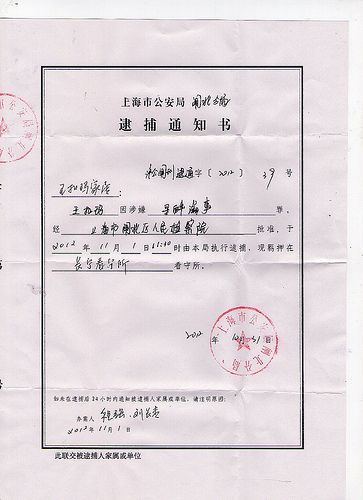 上海市公安局 闸北分局
逮捕通知书
逮通字〔2012〕39号
王扣玛家属：
王扣玛 因涉嫌 寻衅滋事 罪，
经 上海市闸北区人民检察院 批准，于
2012年11月1日11:30时由本局执行逮捕，现羁押在
长宁看守所 看守所。
上海市公安局闸北分局
2012年10月31日
如未在逮捕后24小时内通知被逮捕人家属或单位，请注明原因：
办案人
2012年11月1日
此联交被逮捕人家属或单位